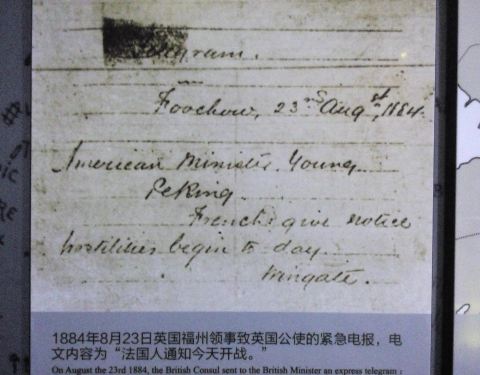 Telegram.
Foochow, 23rd Augst, 1884.
American Minister Young
Peking
French give notice
hostilities begin to day.
Wingate.
1884年8月23日英国福州领事致英国公使的紧急电报，电
文内容为“法国人通知今天开战。”
On August the 23rd 1884, the British Consul sent to the British Minister an express telegram :